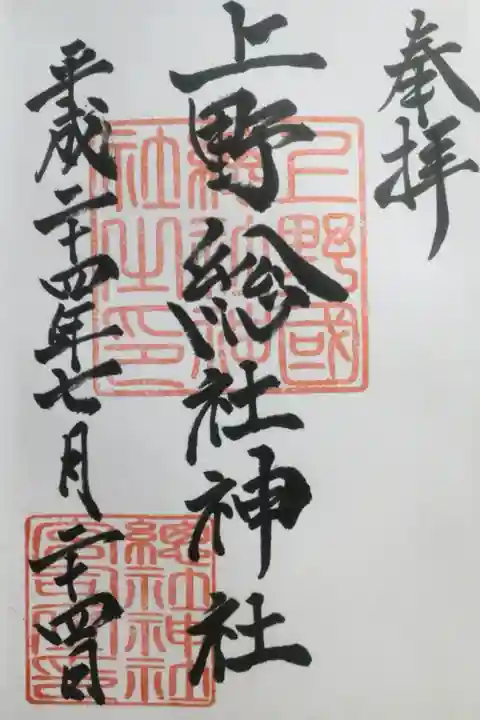 奉拝
上野総社神社
平成二十四年七月二十四日
上野國
総社神
社之印
總社神社
宮司之印